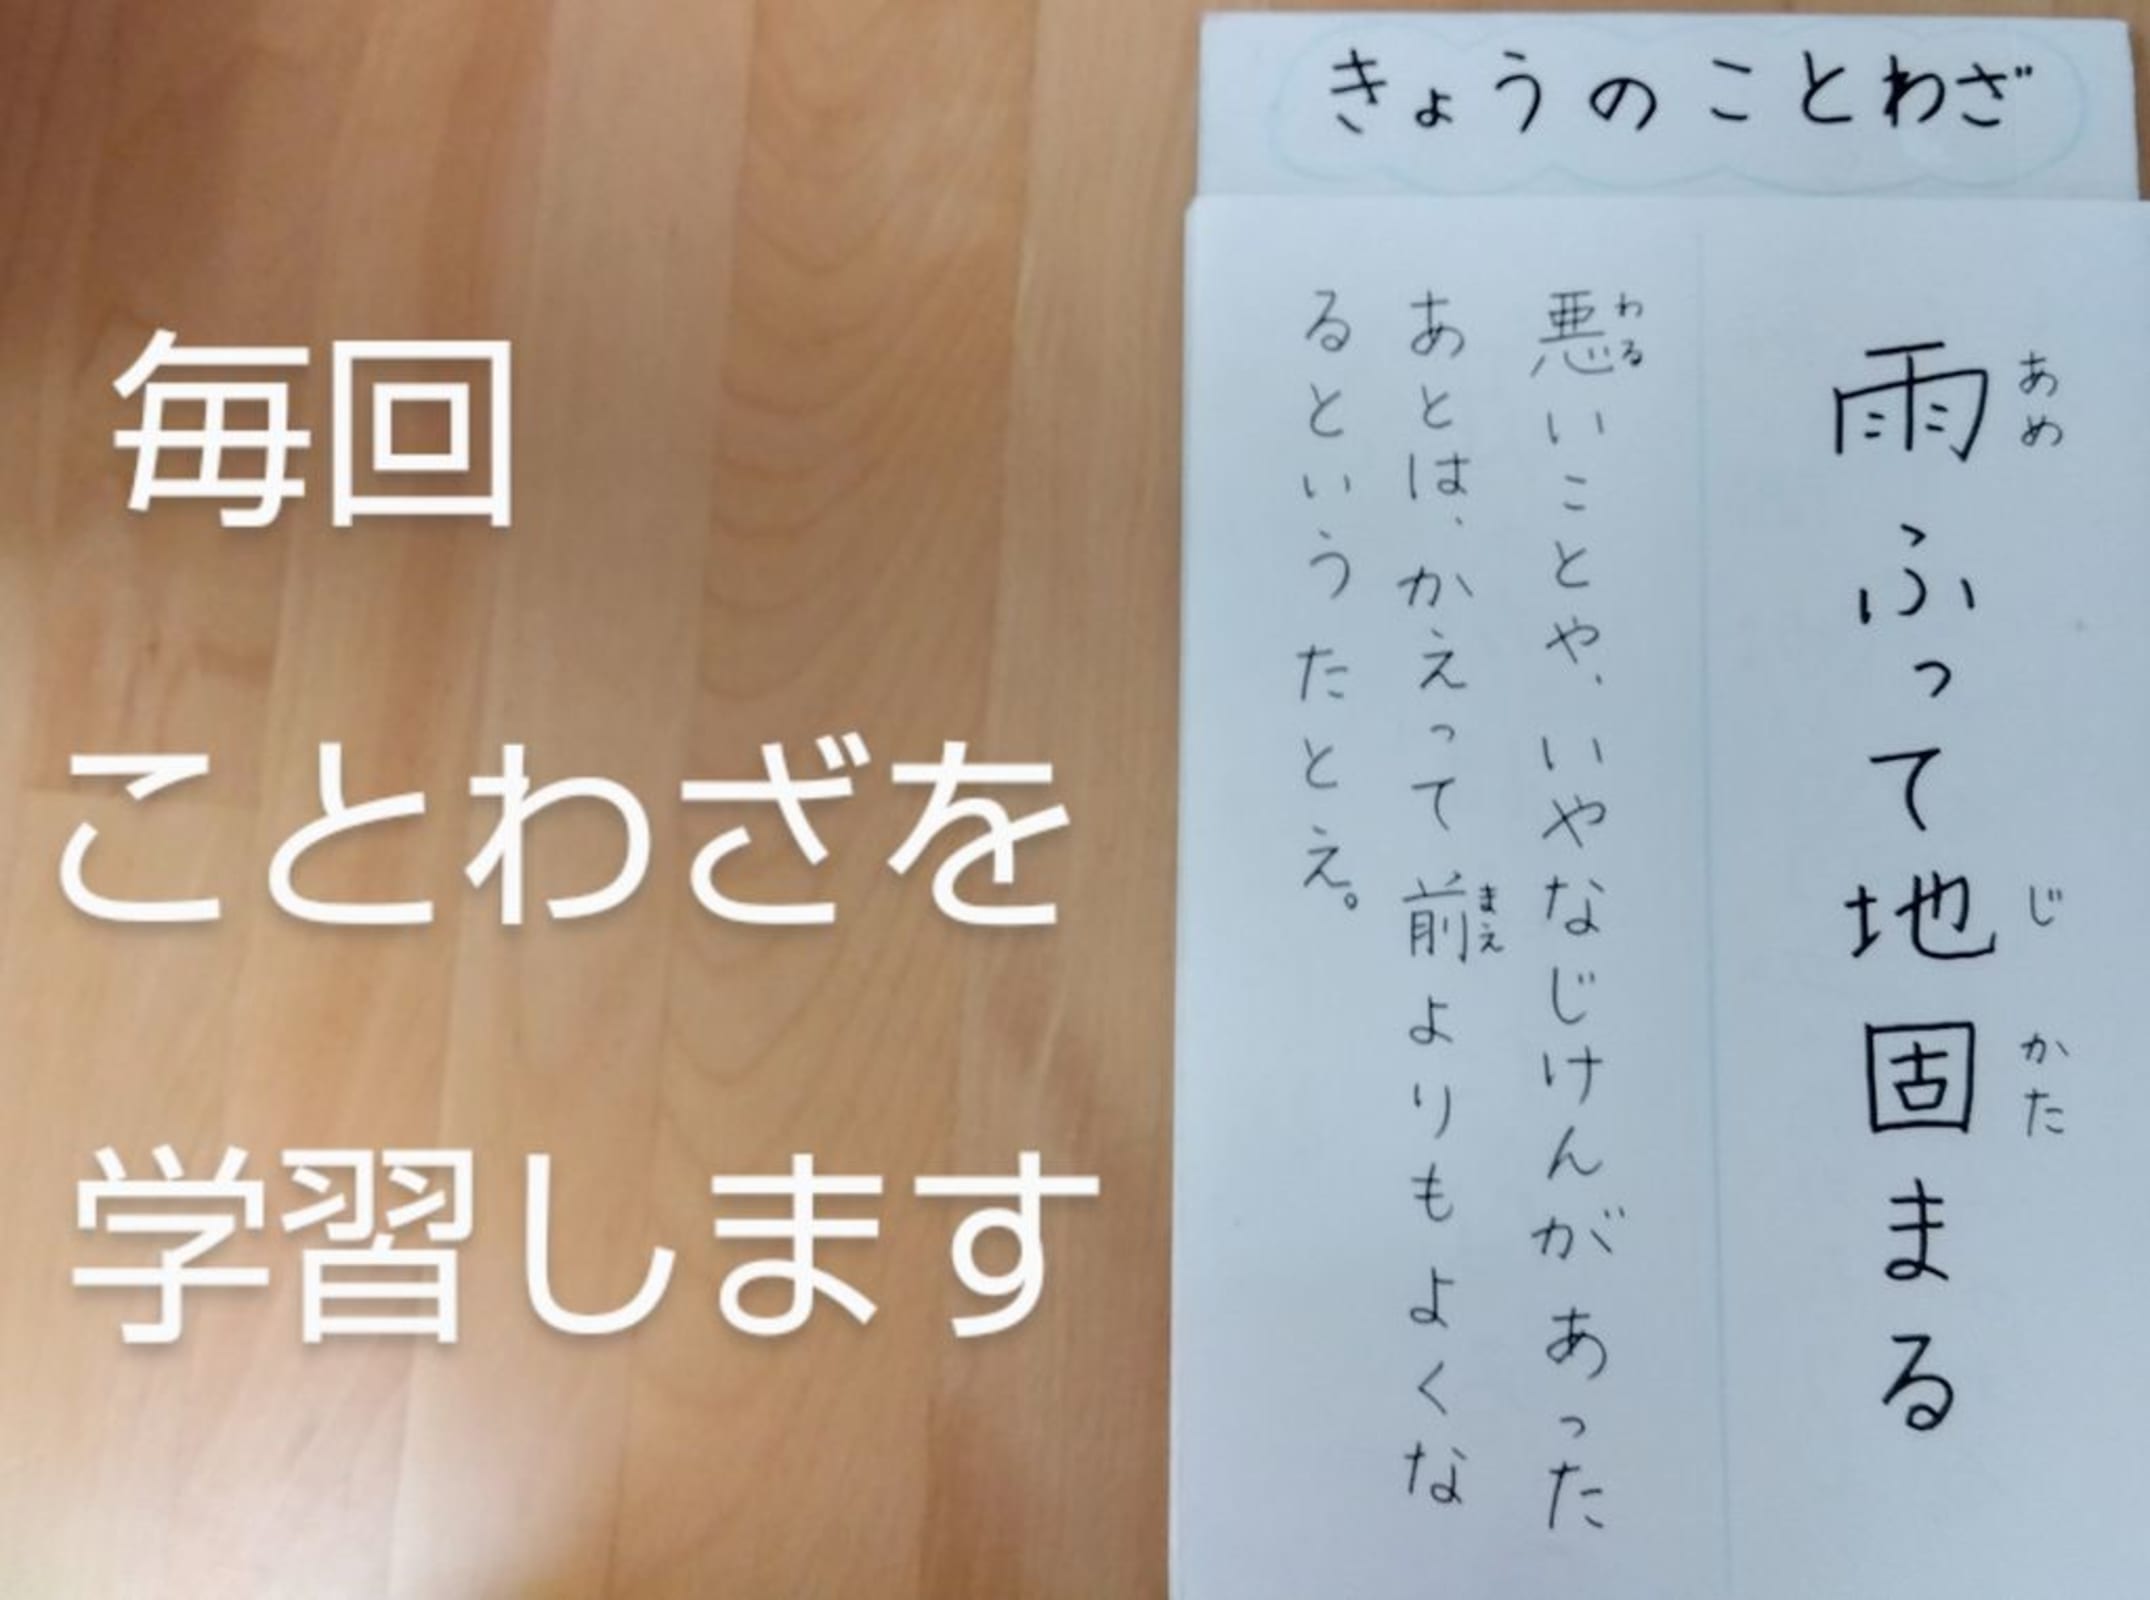 毎回
ことわざを
学習します
きょうのことわざ
雨ふって地固まる
あめ
じ
かた
悪いことや、いやなじけんがあった
わる
あとは、かえって前よりもよくな
まえ
るというたとえ。